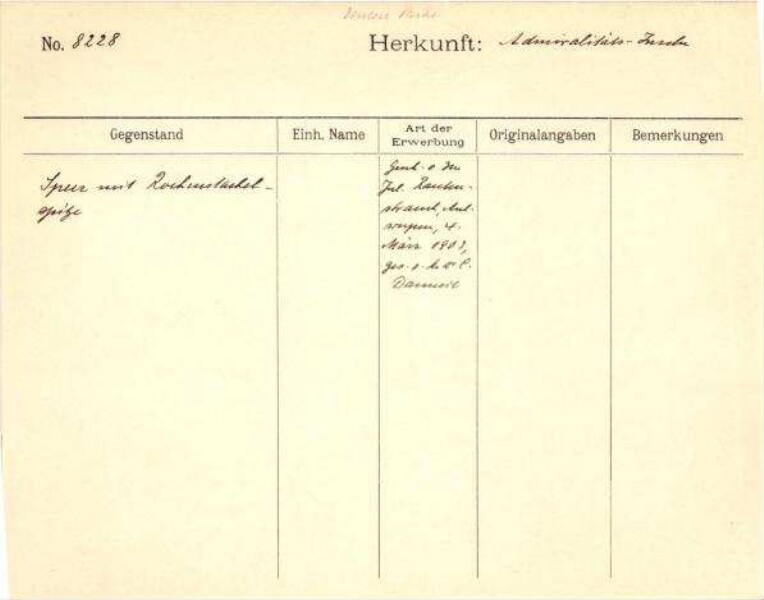 No. 8228 Herkunft: Admiralitäts-Inseln
Gegenstand Einh. Name Art der Erwerbung Originalangaben Bemerkungen
Speer mit Rochenstachel-
spitze
Gesch. v. Frl.
Rauten-
strauch, Ant-
werpen, 4.
März 1908,
ges. v.